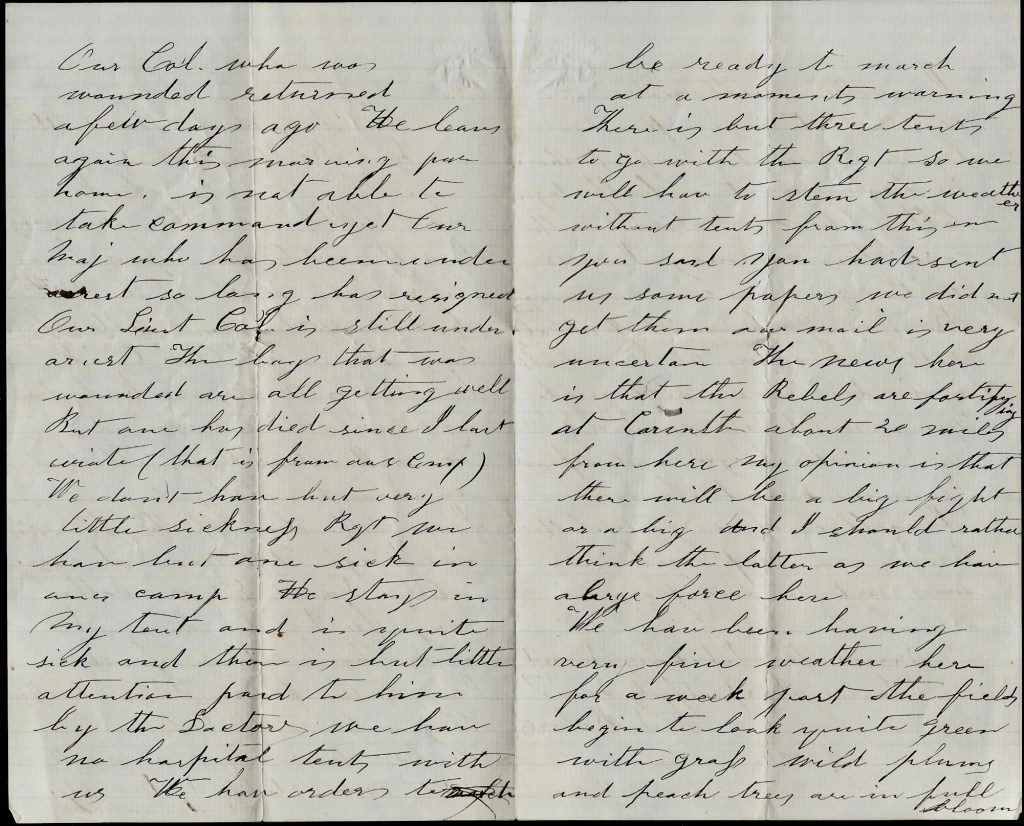 Our Col. who was
wounded returned
a few days ago He leavs
again this morning for
home. is not able to
take command yet Our
Maj who has been under
arrest so long has resigned
Our Lieut Col. is still under
arrest The boys that was
wounded are all getting well
But one has died since I last
wrote (that is from our Comp)
We don't have but very
little sickness Rgt we
have but one sick in
our camp He stays in
My tent and is quite
sick and there is but little
attention paid to him
by the Doctors we have
no hospital tents with
us We have orders to
be ready to march
at a moments warning
There is but three tents
to go with the Regt so we
will have to stem the weather
without tents from this on
you said you had sent
us some papers we did not
get them our mail is very
uncertain The news here
is that the Rebels are fortifying
at Corinth about 20 miles
from here my opinion is that
there will be a big fight
or a big and I should rather
think the latter as we have
a large force here
We have been having
very fine weather here
for a week past the fields
begin to look quite green
with grass wild plums
and peach trees are in full
bloom